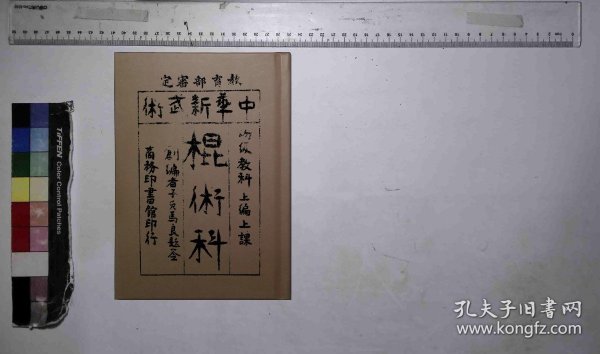 教育部審定
中華新武術
初級教科 上編上課
棍術科
創編者子貞馬良題簽
商務印書館印行
TIFFEN Color Control Patches
孔夫子旧书网
www.kongfz.com